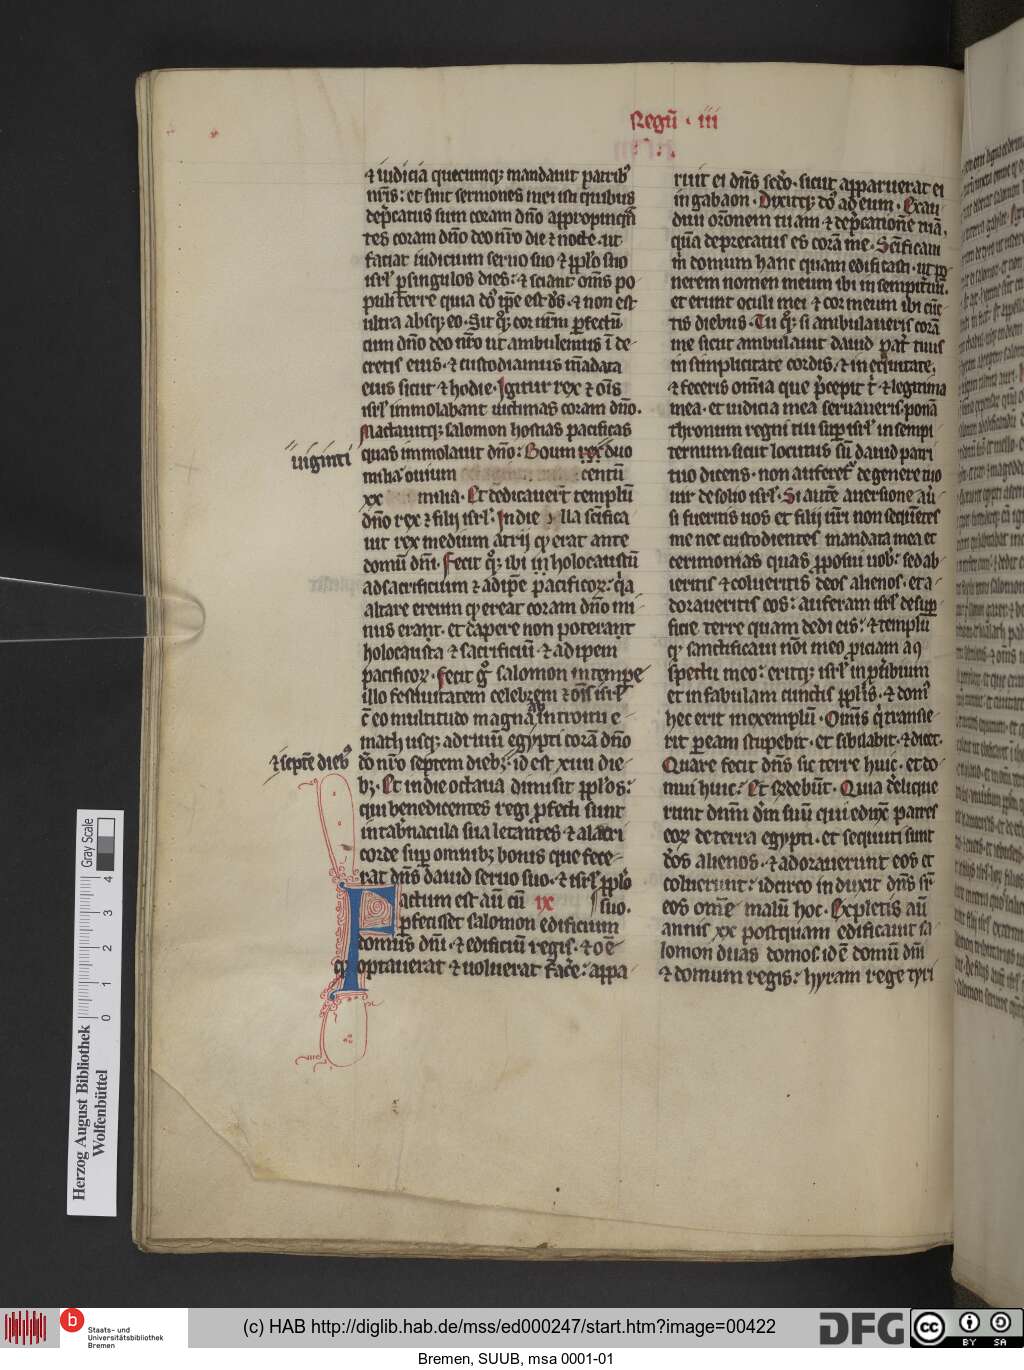 Regū · iii
⁊ iudicia quecumqꝫ mandauit patribꝰ
nr̄is: et sint sermones mei isti quibus
dep̄catus sum coram dn̄o appropinqn̄
tes coram dn̄o deo nr̄o die ⁊ nocte · ut
faciat iudicium seruo suo ⁊ pplo suo
isrl̓ ꝑ singulos dies: ⁊ sciant om̄s po
puli terre quia dn̄s ip̄e est ds̄ · ⁊ non est
ultra absqꝫ eo · Sit qꝫ cor nr̄m ꝑfectū
cum dn̄o deo nr̄o ut ambulemus ī de-
cretis eius · ⁊ custodiamus mādata
eius sicut ⁊ hodie · Igitur rex ⁊ om̄s
isrl̓ immolabant uictimas coram dn̄o ·
Mactauitqꝫ salomon hostias pacificas
quas immolauit dn̄o: Boum xx duo
uiginti
milia ouium centū
xx milia · Et dedicauert̄ templū
dn̄o rex ⁊ filij isrl̓ · In die illa sc̄ifica
uit rex medium atrij qd̓ erat ante
domū dn̄i · Fecit qꝫ ibi in holocaustū
ad sacrificium ⁊ adipē pacificoꝝ: qa̓
altare ereum qd̓ erat coram dn̄o mi
nus erant · et capere non poterant
holocausta ⁊ sacrificiū · ⁊ adipem
pacificoꝝ · Fecit g̓ salomon in tempe
illo festiuitatem celebrem ⁊ om̄s isrl̓
c̄ eo multitudo magna ab introitu e-
math usqꝫ ad riuū egypti corā dn̄o
do̓ nr̄o septem diebꝫ: id est xiiii die-
⁊ septē diebꝰ
bꝫ · Et in die octaua dimisit pplo̓s:
qui benedicentes regi ꝑfecti sunt
in tab̓nacula sua letantes · ⁊ alacri
corde sup̄ omnibꝫ bonis que fece-
rat dn̄s dauid seruo suo · ⁊ isrl̓ pplo
suo.
Factum est aū cū ix
ꝑfecisset salomon edificium
domus dn̄i · ⁊ edificiū regis · ⁊ oē
qd̓ optauerat ⁊ uoluerat fac̓e: appa-
ruit ei dn̄s sc̄do · sicut apparuerat ei
in gabaon · Dixitqꝫ do̓ ad eum · Exau-
diui or̄onem tuam ⁊ dep̄cationē tuā,
quā deprecatus es corā me · Sc̄ificaui
in̄ domum hanc quam edificasti · ut po-
nerem nomen meum ibi in sempit̓nū ·
et erunt oculi mei ⁊ cor meum ibi cūc
tis diebus · Tu qꝫ si ambulaueris corā
me sicut ambulauit dauid pat̓ tuus
in simplicitate cordis, ⁊ in equitate:
⁊ feceris omīa que p̄cepit t̓ · ⁊ legitima
mea · et iudicia mea seruaueris · ponā
thronum regni tui sup̄ isrl̓ in sempi
ternum sicut locutus sū dauid patri
tuo dicens · non aufereť de genere tuo
uir de solio isrl̓ · Si autē auersione au̓
si fueritis uos et filij uri̓ non sequētes
me nec custodientes mandata mea et
cerimonias quas ꝓposui uob̓: sed ab-
ieritis ⁊ colueritis deos alienos · et a-
doraueritis eos: auferam isrl̓ de sup̄-
ficie terre quam dedi eis: ⁊ templū
qd̓ sanctificaui noī meo ꝓiciam a 9
spectu meo: eritqꝫ isrl̓ in ꝓuerbium
et in fabulam cunctis pplis̓ · ⁊ domꝰ
hec erit in exemplū · Om̄is qi̓ transie-
rit ꝑ eam stupebit · et sibilabit · ⁊ dicet ·
Quare fecit dn̄s sic terre huic · et do-
mui huic? Et r̄ndebūt · Quia d̓elique
runt dnm̄ dm̄ suū qui eduxit patres
eoꝝ de terra egypti · et sequuti sunt
deos alienos · ⁊ adorauerunt eos et
coluerunt: idcirco induxit dn̄s sr̄
eos om̄e malū hoc · Expletis aū
annis xx postquam edificauit sa
lomon duas domos id ē domū dn̄i
⁊ domum regis: hyram rege tyri
Gray Scale
0 1 2 3 4
Herzog August Bibliothek
Wolfenbüttel
b
Staats- und
Universitätsbibliothek
Bremen
(c) HAB http://diglib.hab.de/mss/ed000247/start.htm?image=00422
DFG
cc
BY SA
Bremen, SUUB, msa 0001-01